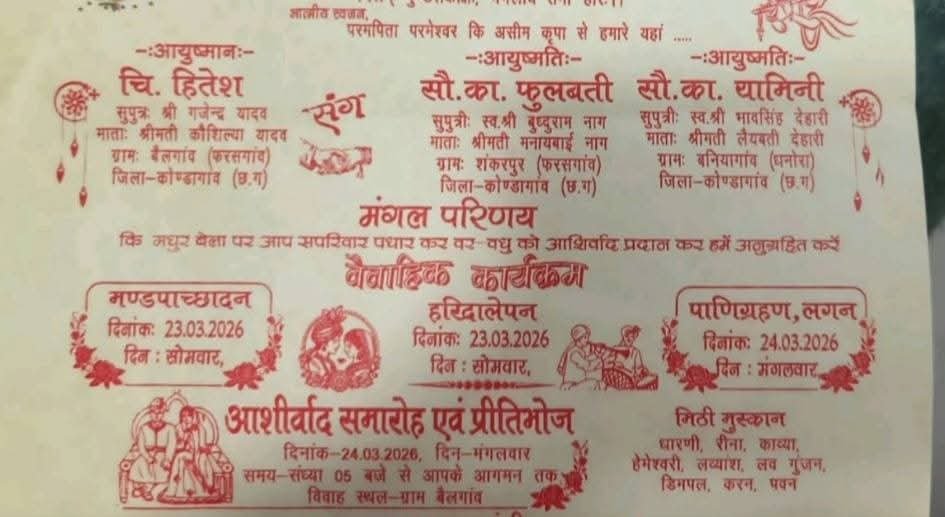 आत्मीय स्वजन,
परमपिता परमेश्वर कि असीम कृपा से हमारे यहां .....
-:आयुष्मानः-
चि. हितेश
सुपुत्रः श्री गजेन्द्र यादव
माताः श्रीमती कौशिल्या यादव
ग्रामः बैलगांव (फरसगांव)
जिला-कोण्डागांव (छ.ग)
संग
-:आयुष्मतिः-
सौ.का. फुलबती
सुपुत्रीः स्व.श्री बुध्दुराम नाग
माताः श्रीमती मनायबाई नाग
ग्रामः शंकरपुर (फरसगांव)
जिला-कोण्डागांव (छ.ग)
-:आयुष्मतिः-
सौ.का. यामिनी
सुपुत्रीः स्व.श्री भावसिंह देहारी
माताः श्रीमती लैयबती देहारी
ग्रामः बनियागांव (धनोरा)
जिला-कोण्डागांव (छ.ग)
मंगल परिणय
कि मधुर बेला पर आप सपरिवार पधार कर वर-वधु को आशिर्वाद प्रदान कर हमें अनुग्रहित करें
वैवाहिक कार्यक्रम
मण्डपाच्छादन
दिनांकः 23.03.2026
दिन : सोमवार,
हरिद्रालेपन
दिनांकः 23.03.2026
दिन : सोमवार,
पाणिग्रहण,लगन
दिनांकः 24.03.2026
दिन : मंगलवार
आशीर्वाद समारोह एवं प्रीतिभोज
दिनांक-24.03.2026, दिन-मंगलवार
समय-संध्या 05 बजे से आपके आगमन तक
विवाह स्थल-ग्राम बैलगांव
मिठी मुस्कान
धारणी, रीना, काव्या,
हेमेश्वरी, लव्यांश, लव गुंजन,
डिमपल, करन, पवन